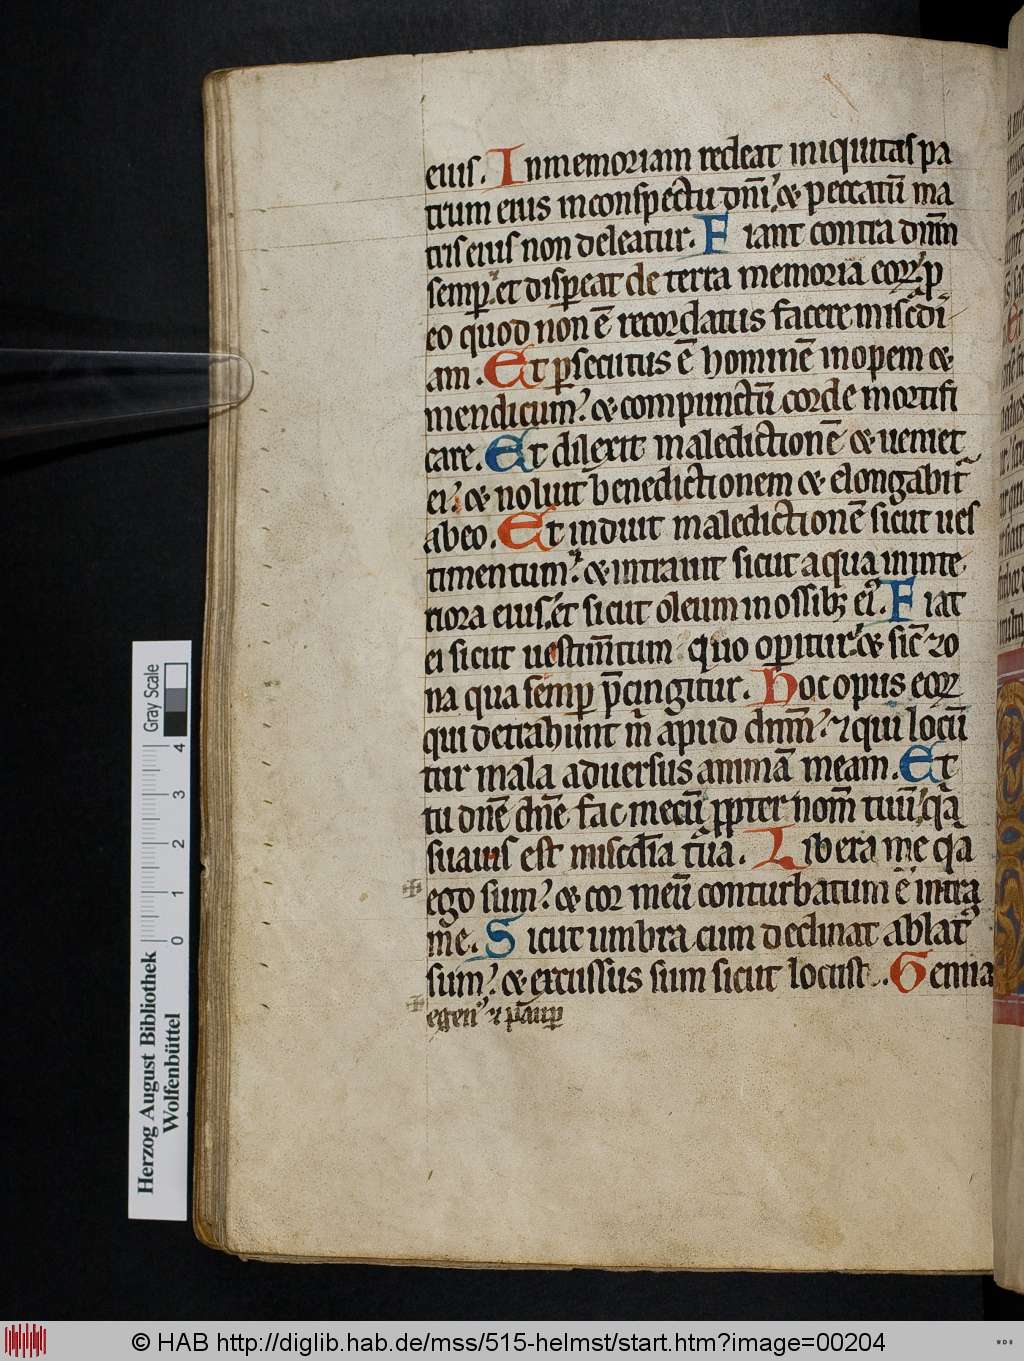 eius. Inmemoriam redeat iniquitas pa
trum eius inconspectu dn̄i. & peccatū ma
tris eius non deleatur. Fiant contra dn̄m
semp. et dispeat de terra memoria eoꝝ. p
eo quod non ē recordatus facere misc̄di
am. Et psecutus ē hominē inopem &
mendicum. & compunctū corde mortifi
care. Et dilexit maledictionē & ueniet
ei. & noluit benedictionem & elongabit̄
abeo. Et induit maledictionē sicut ues
timentum. & intrauit sicut aqua ininte
riora eius. et sicut oleum in ossibꝫ ei᷒. Fiat
ei sicut uestim̄tum quo opitur. & sic̄ zo
na qua semp p̄cingitur. Hoc opus eoꝝ
qui detrahunt m̄ apud dn̄m. ⁊ qui locū
tur mala aduersus animā meam. Et
tu dn̄e dn̄e fac mecū ppter nom̄ tuū. q̄a
suauis est misc̄dia tua. Libera me q̄a
ego sum. & cor meū conturbatum ē intra
me. Sicut umbra cum declinat ablat᷒
sum. & excussus sum sicut locuste. Genua
egen᷒ ⁊ paup
Herzog August Bibliothek
Wolfenbüttel
0 1 2 3 4
Gray Scale
© HAB http://diglib.hab.de/mss/515-helmst/start.htm?image=00204